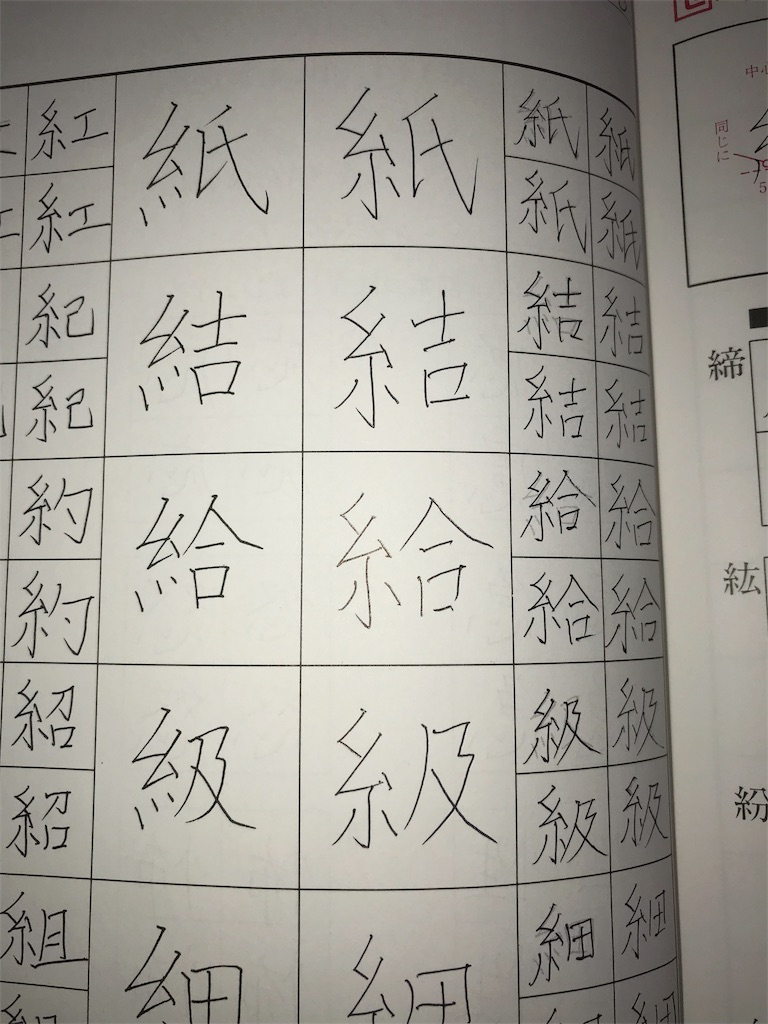 紅 紙 紙 紙 紙
紅 紙 紙
紀 結 結 結 結
紀 結 結
約 給 給 給 給
約 給 給
紹 級 級 級 級
紹 級 級
組 細 細 細 細
中心
同じに
5
締
紘
紛